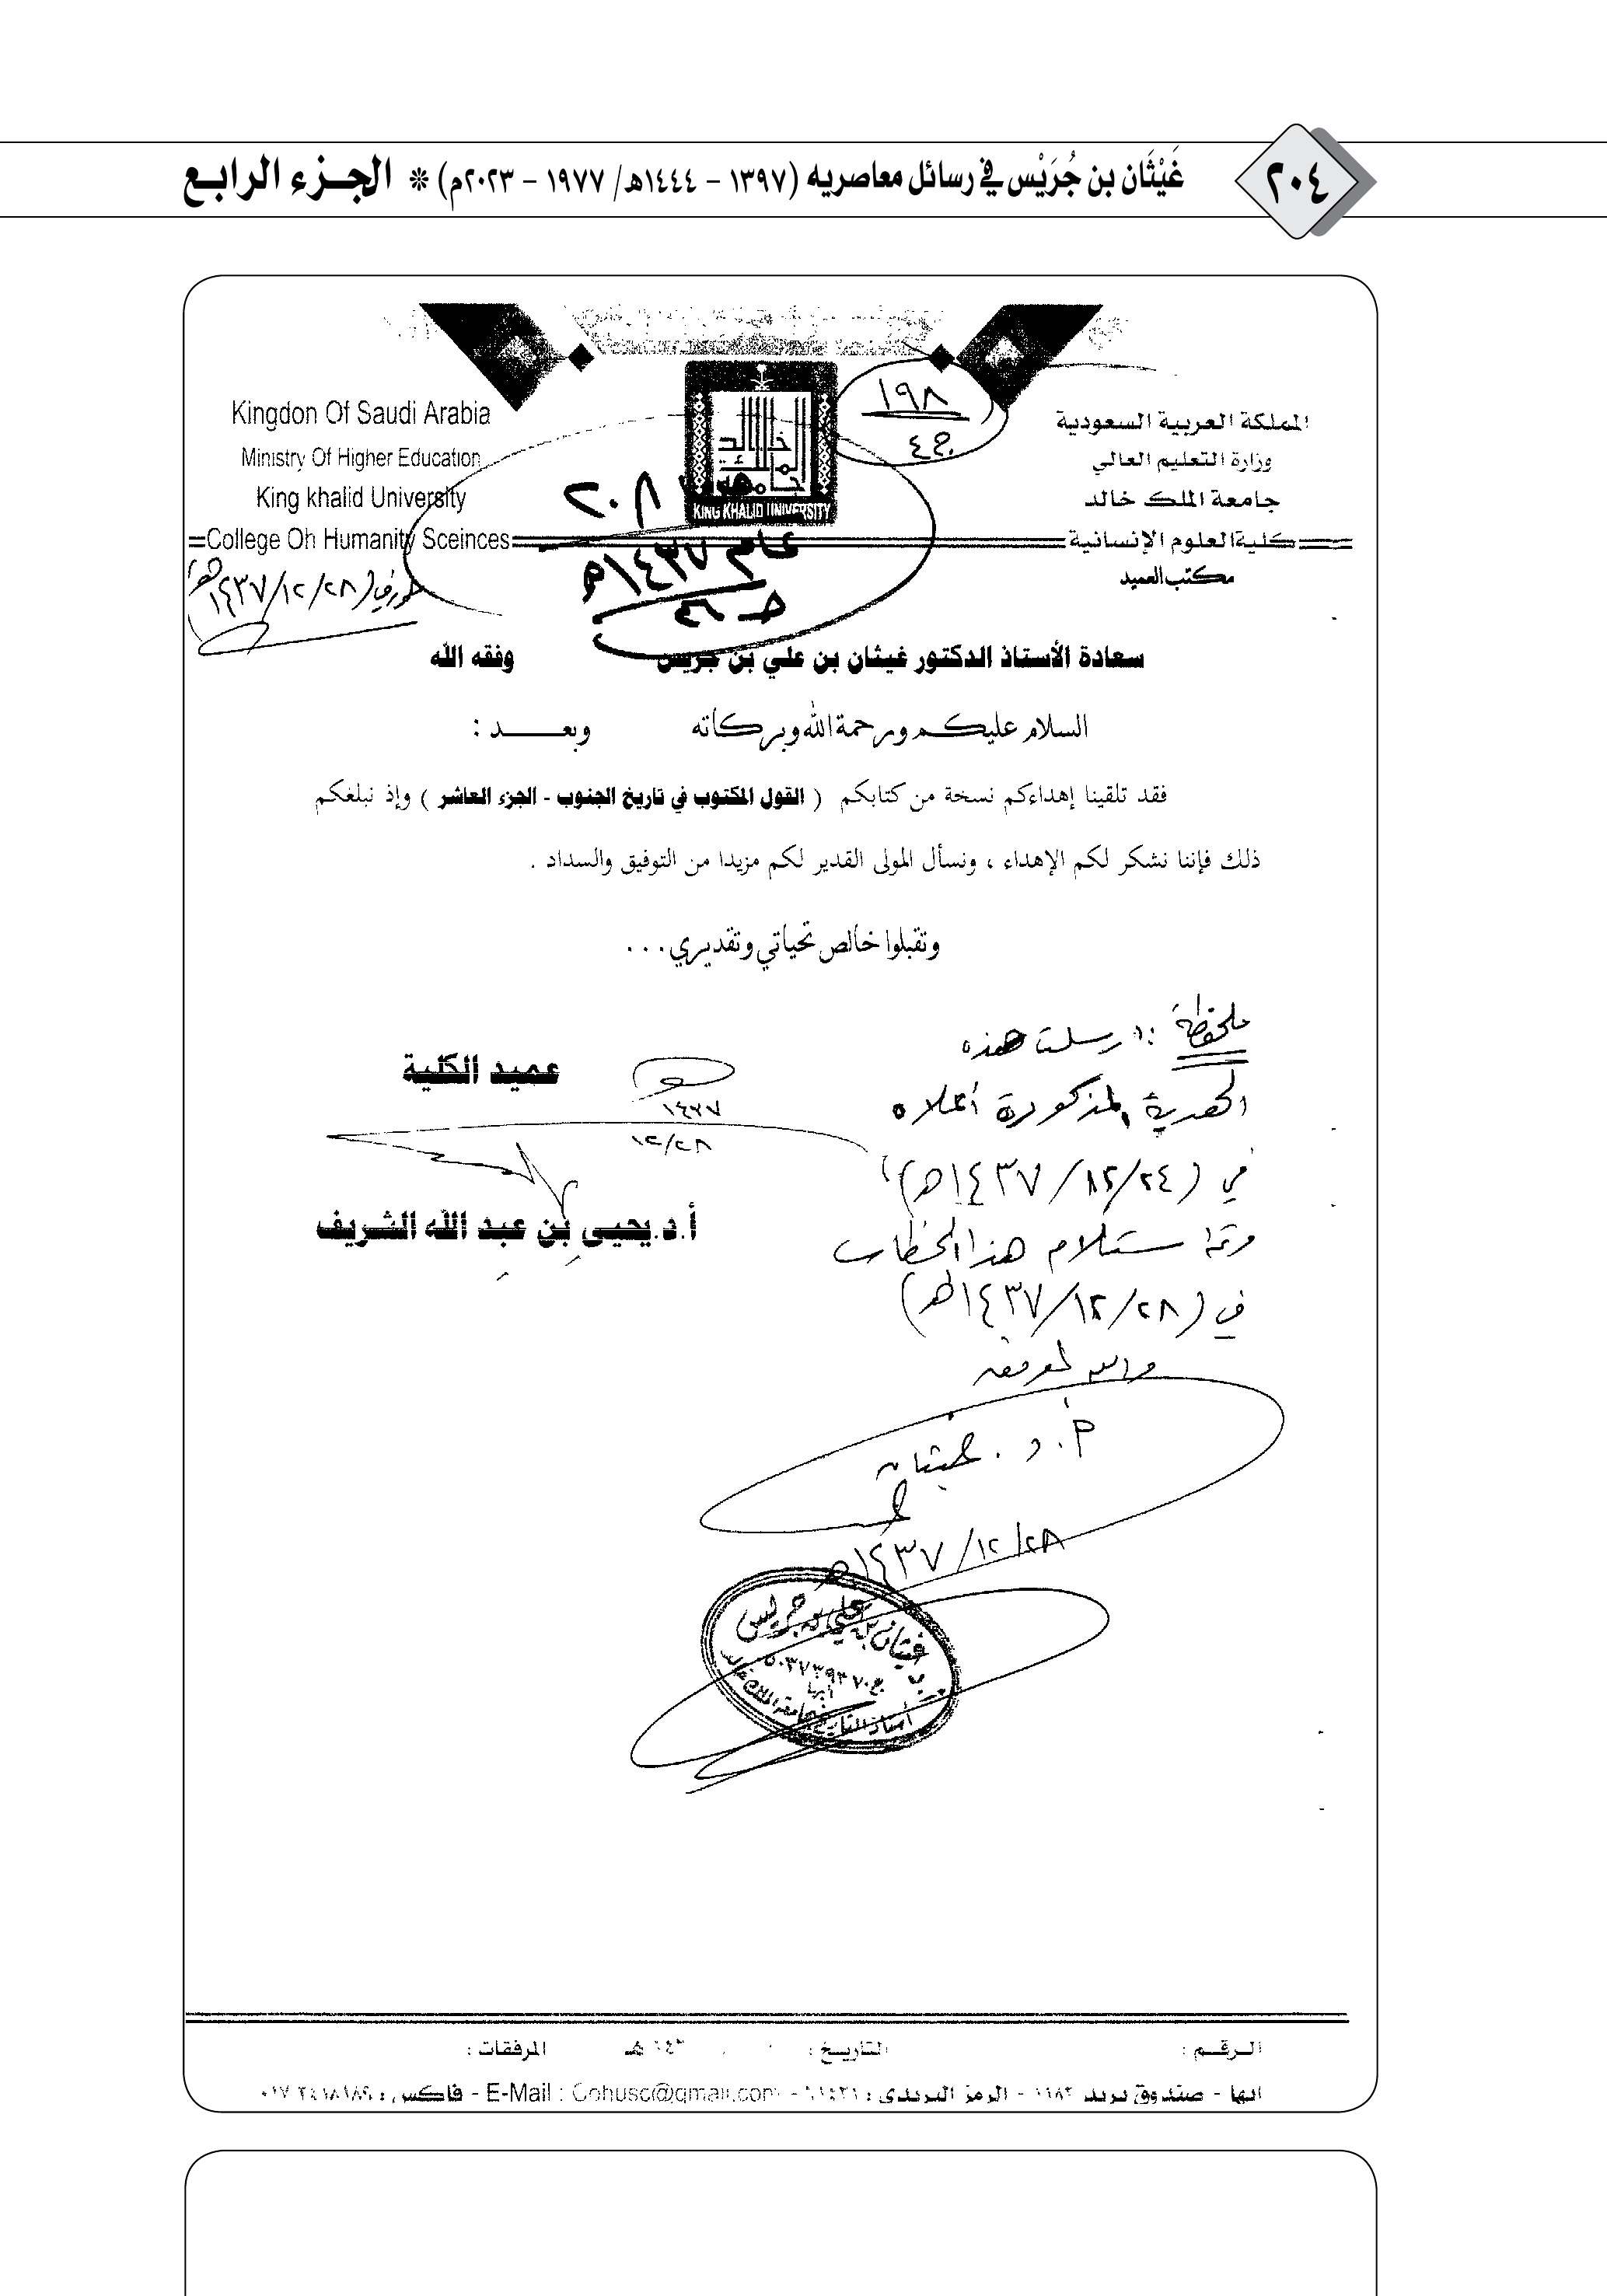 ٢٠٤
غَيْثَان بن جُرَيْس في رسائل معاصريه (١٣٩٧ – ١٤٤٤هـ/ ١٩٧٧ – ٢٠٢٣م) * الجـزء الرابـع
المملكة العربية السعودية
وزارة التعليم العالي
جامعة الملك خالد
كلية العلوم الإنسانية
مكتب العميد
١٩٨
ج٤
KING KHALID UNIVERSITY
Kingdon Of Saudi Arabia
Ministry Of Higher Education
King khalid University
College Oh Humanity Sceinces
٢٠٨
عام ١٤٣٧هـ
(١٤٣٧/١٢/٢٨هـ)
سعادة الأستاذ الدكتور غيثان بن علي بن جريس وفقه الله
السلام عليكم ورحمة الله وبركاته وبعـــــد :
فقد تلقينا إهداءكم نسخة من كتابكم ( القول المكتوب في تاريخ الجنوب - الجزء العاشر ) وإذ نبلغكم
ذلك فإننا نشكر لكم الإهداء ، ونسأل المولى القدير لكم مزيدا من التوفيق والسداد .
وتقبلوا خالص تحياتي وتقديري . . .
عميد الكلية
١٤٣٧
١٢/٢٨
أ.د.يحيى بن عبد الله الشريف
ملحوظة : ارسلت هذه
الهدية المذكورة أعلاه
في (١٤٣٧/١٢/٢٤هـ)
وتم استلام هذا الخطاب
في (١٤٣٧/١٢/٢٨هـ)
والله الموفق
أ . د . غيثان
١٤٣٧/١٢/٢٨هـ
غيثان بن علي بن جريس
أبها
أستاذ التاريخ بجامعة الملك خالد
الـرقـم : التاريـخ : ١٤٣ هـ المرفقات :
ابها - صندوق بريد ١١٨٣ - الرمز البريدي : - E-Mail : Cohusc@gmail.com - فاكس :